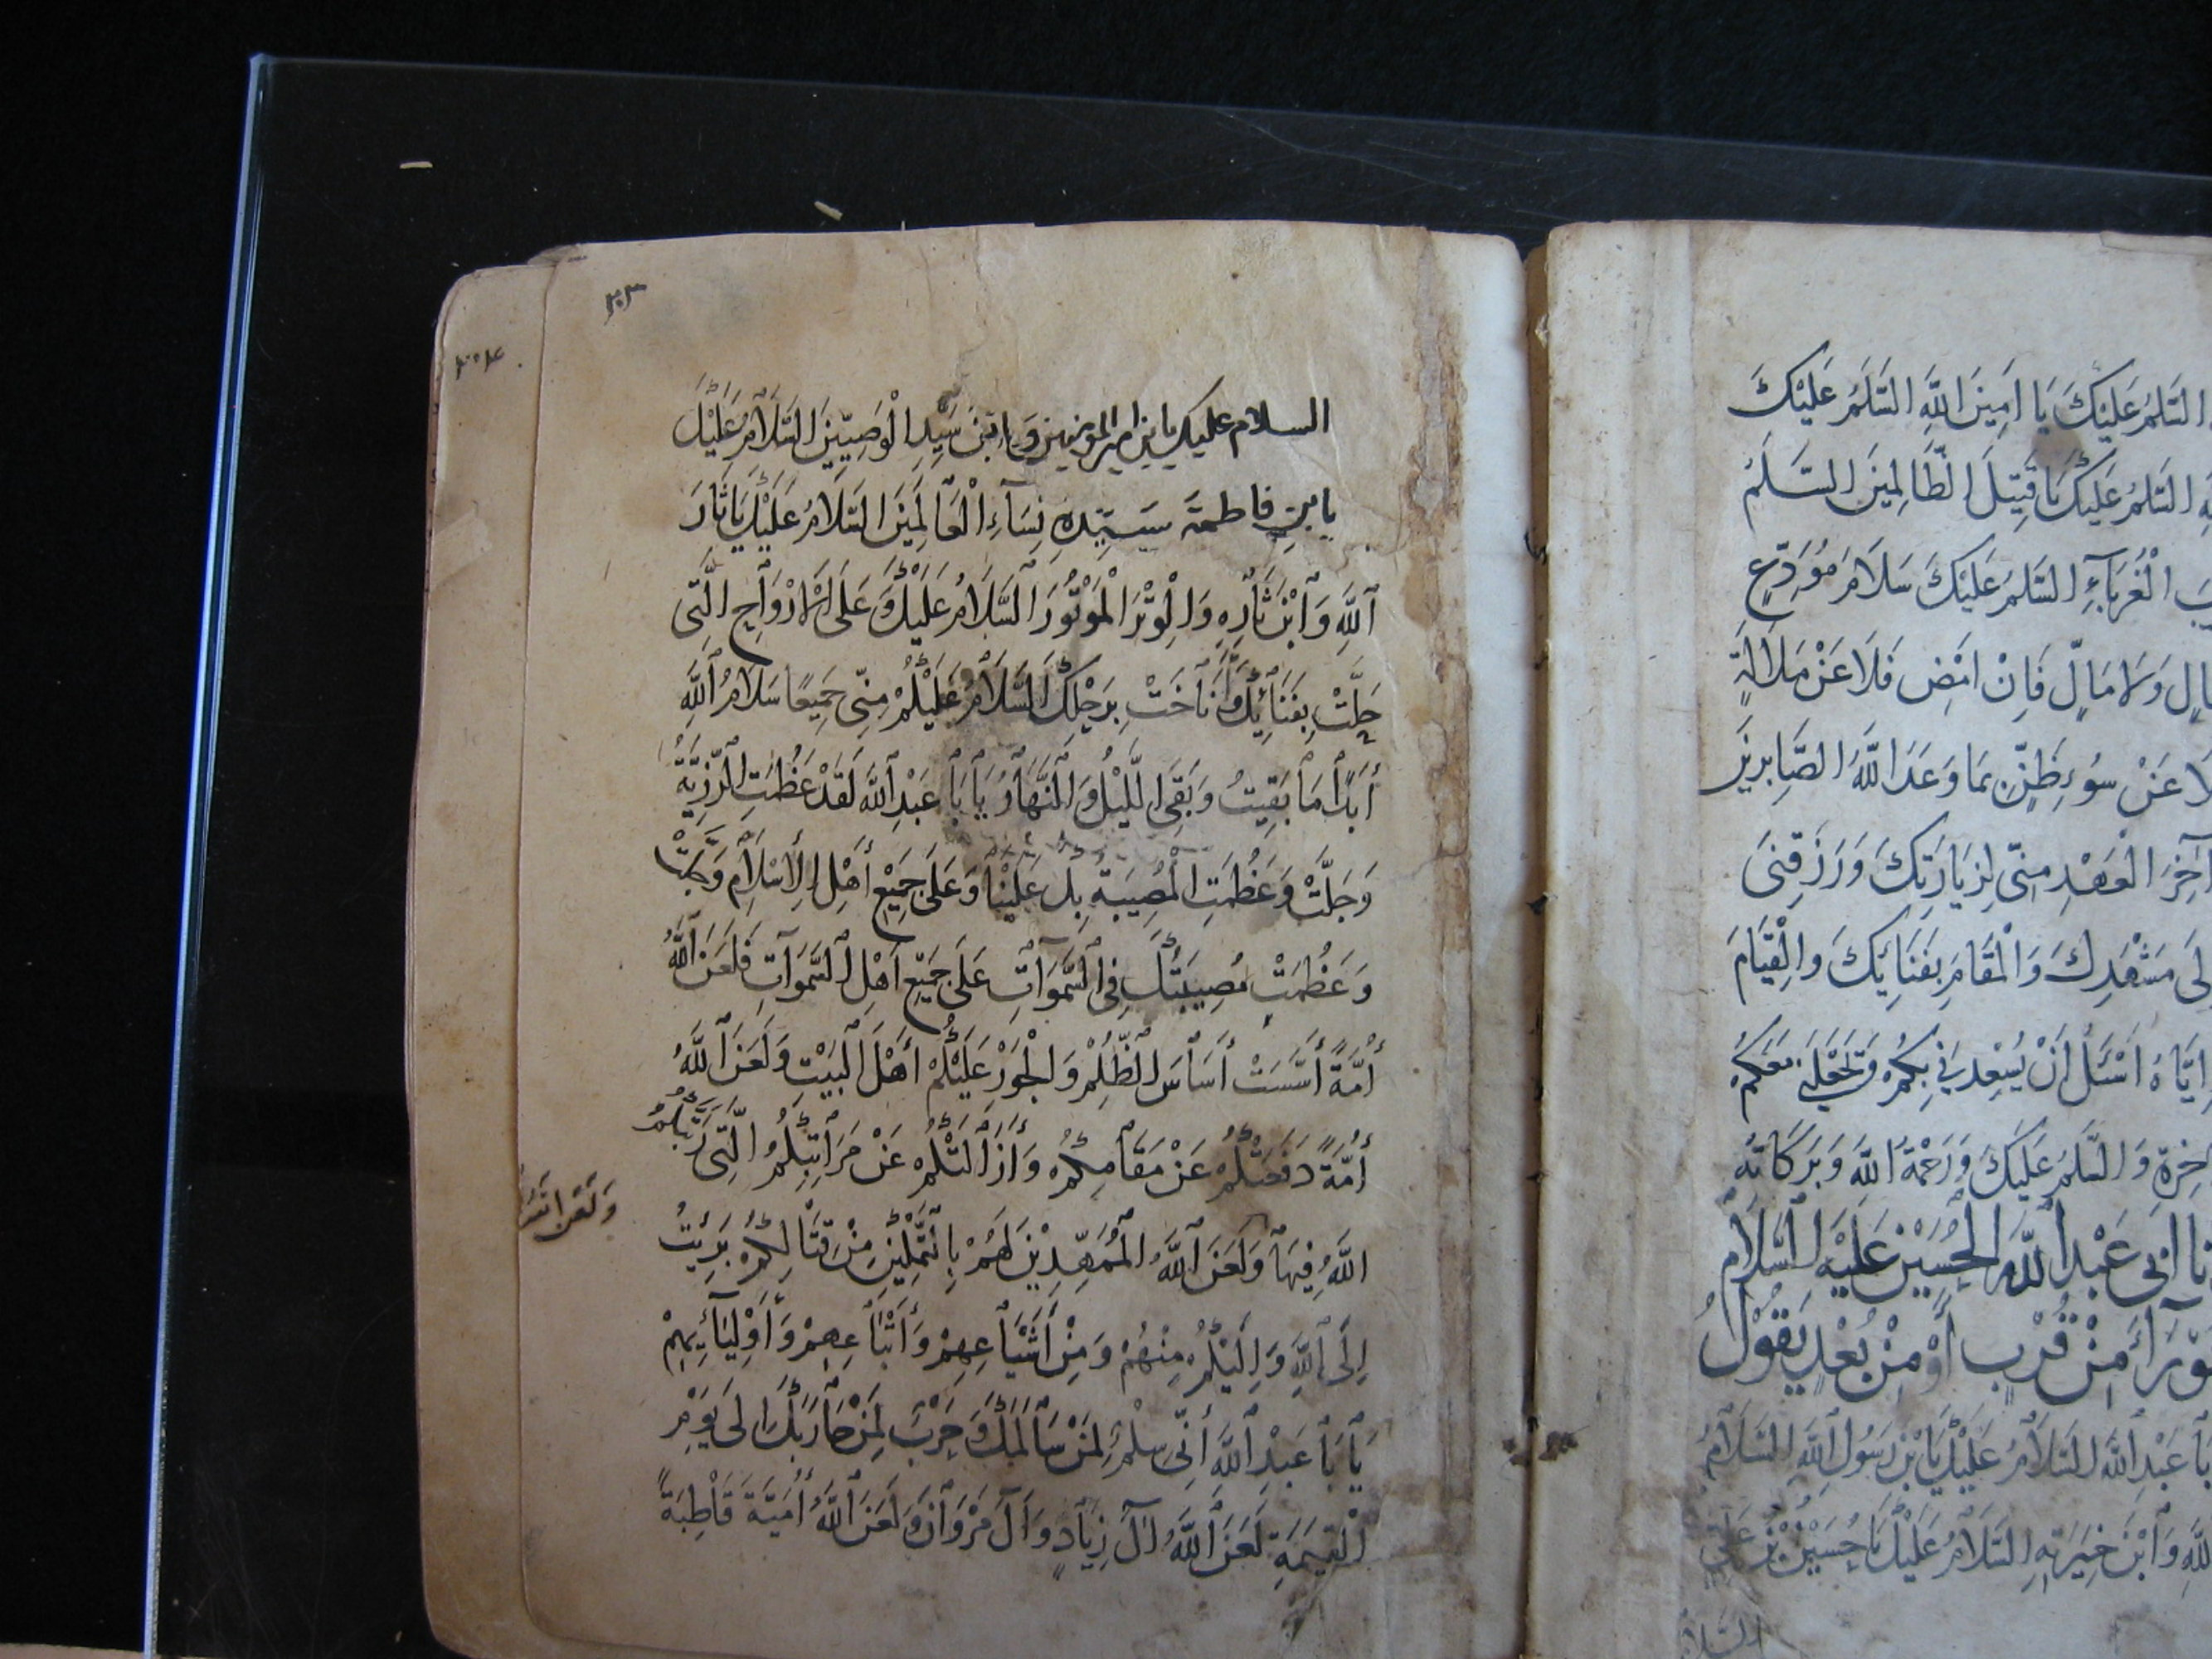 السلم عليك يا امين الله السلم عليك
السلم عليك يا قتيل الظالمين السلم
الغرباء السلم عليك سلام مودع
ولا مال فان امض فلا عن ملالة
لا عن سوء ظن بما وعد الله الصابرين
آخر العهد مني لزيارتك ورزقني
مشهدك والمقام بفنائك والقيام
اياه اسئل أن يسعدني بكم وتجعلني معكم
والسلم عليك ورحمة الله وبركاته
ابي عبد الله الحسين عليه السلام
من قرب أو من بعد يقول
عبد الله السلام عليك يا بن رسول الله السلام
وابن خيرته السلام عليك يا حسين بن علي
السلا
٢٠٣
٢٠٤
السلام عليك يا بن امير المومنين وابن سيد الوصيين السلام عليك
يا بن فاطمة سيدة نساء العالمين السلام عليك يا ثار
الله وابن ثاره والوتر الموتور السلام عليك وعلى الارواح التي
حلت بفنائك وأناخت برحلك السلام عليكم مني جميعا سلام الله
أبدا ما بقيت وبقي الليل والنهار يا با عبد الله لقد عظمت الرزية
وجلت وعظمت المصيبة بك علينا وعلى جميع أهل الإسلام وجلت
وعظمت مصيبتك في السموات على جميع اهل السموات فلعن الله
أمة أسست أساس الظلم والجور عليكم أهل البيت ولعن الله
أمة دفعتكم عن مقامكم وأزالتكم عن مراتبكم التي رتبكم
الله فيها ولعن الله الممهدين لهم بالتمكين من قتالكم بريت
إلى الله واليكم منهم ومن أشياعهم وأتباعهم وأوليائهم
يا با عبد الله أني سلم لمن سالمك وحرب لمن حاربك الى يوم
القيمة لعن الله آل زياد وآل مروان ولعن الله أمية قاطبة